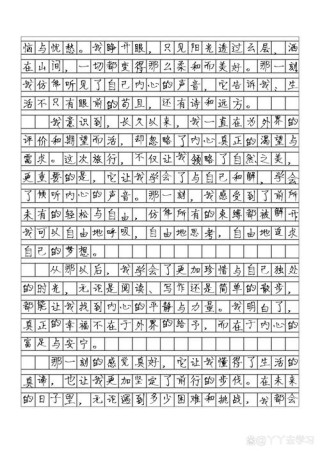 恼与忧愁。我睁开眼，只见阳光透过云层，洒
在山间，一切都变得那么柔和而美好。那一刻
我仿佛听见了自己内心的声音，它告诉我，生
活不只有眼前的苟且，还有诗和远方。
我意识到，长久以来，我一直在为外界的
评价和期望而活，却忽略了内心真正的渴望与
需求。这次旅行，不仅让我领略了自然之美，
更重要的是，它让我学会了与自己和解，学会
了倾听内心的声音。那一刻，我感受到了前所
未有的轻松与自由，仿佛所有的束缚都被解开
我可以自由地呼吸，自由地思考，自由地追求
自己的梦想。
从那以后，我学会了更加珍惜与自己独处
的时光，无论是阅读、写作还是简单的散步，
都能让我找到内心的平静与力量。我明白了，
真正的幸福不在于外界的给予，而在于内心的
富足与安宁。
那一刻的感觉真好，它让我懂得了生活的
真谛，也让我更加坚定了前行的步伐。在未来
的日子里，无论遇到多少困难和挑战，我都会
丫丫去学习